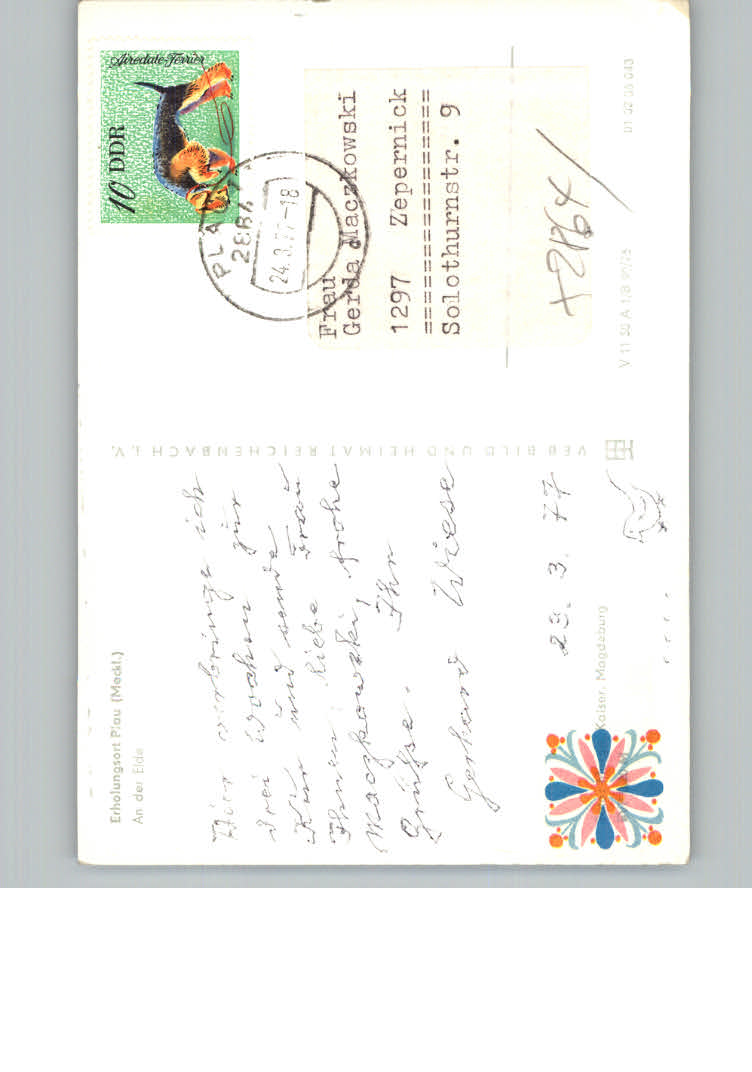 Erholungsort Plau (Meckl.)
An der Elde
Hier verbringe ich
drei Wochen zur
Kur und sende
Ihnen, liebe Frau
Maczkowski, frohe
Grüße. Ihr
Gerhard Wiese
23. 3. 77
Kaiser, Magdeburg
VEB BILD UND HEIMAT REICHENBACH i. V.
Airedale-Terrier
10 DDR
PLA
24.3.77-18
Frau
Gerda Maczkowski
1297 Zepernick
================
Solothurnstr. 9
V 11 50 A 1/B
01 02 03 043